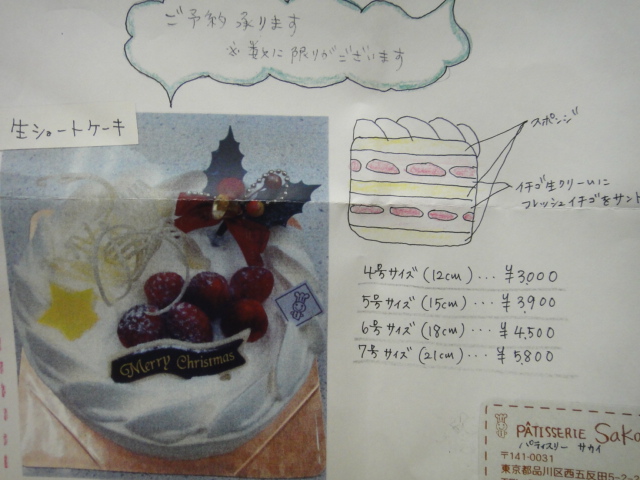 ご予約承ります
※数に限りがございます
生ショートケーキ
スポンジ
イチゴ生クリームに
フレッシュイチゴをサンド
4号サイズ(12cm)...¥3,000
5号サイズ(15cm)...¥3,900
6号サイズ(18cm)...¥4,500
7号サイズ(21cm)...¥5,800
Merry Christmas
PÂTISSERIE Saka
パティスリー サカイ
〒141-0031
東京都品川区西五反田5-2-